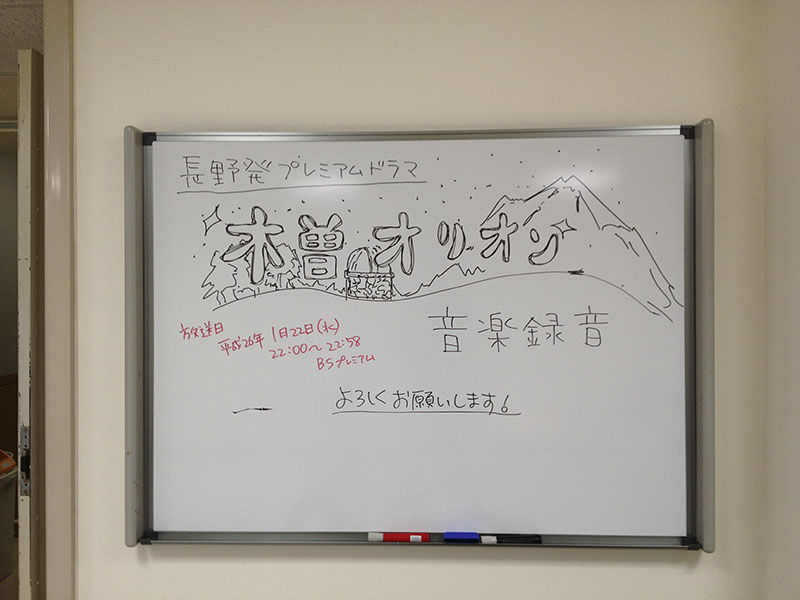 長野発プレミアムドラマ
木曽オリオン
音楽録音
放送日
平成26年 1月22日(水)
22:00〜22:58
BSプレミアム
よろしくお願いします。